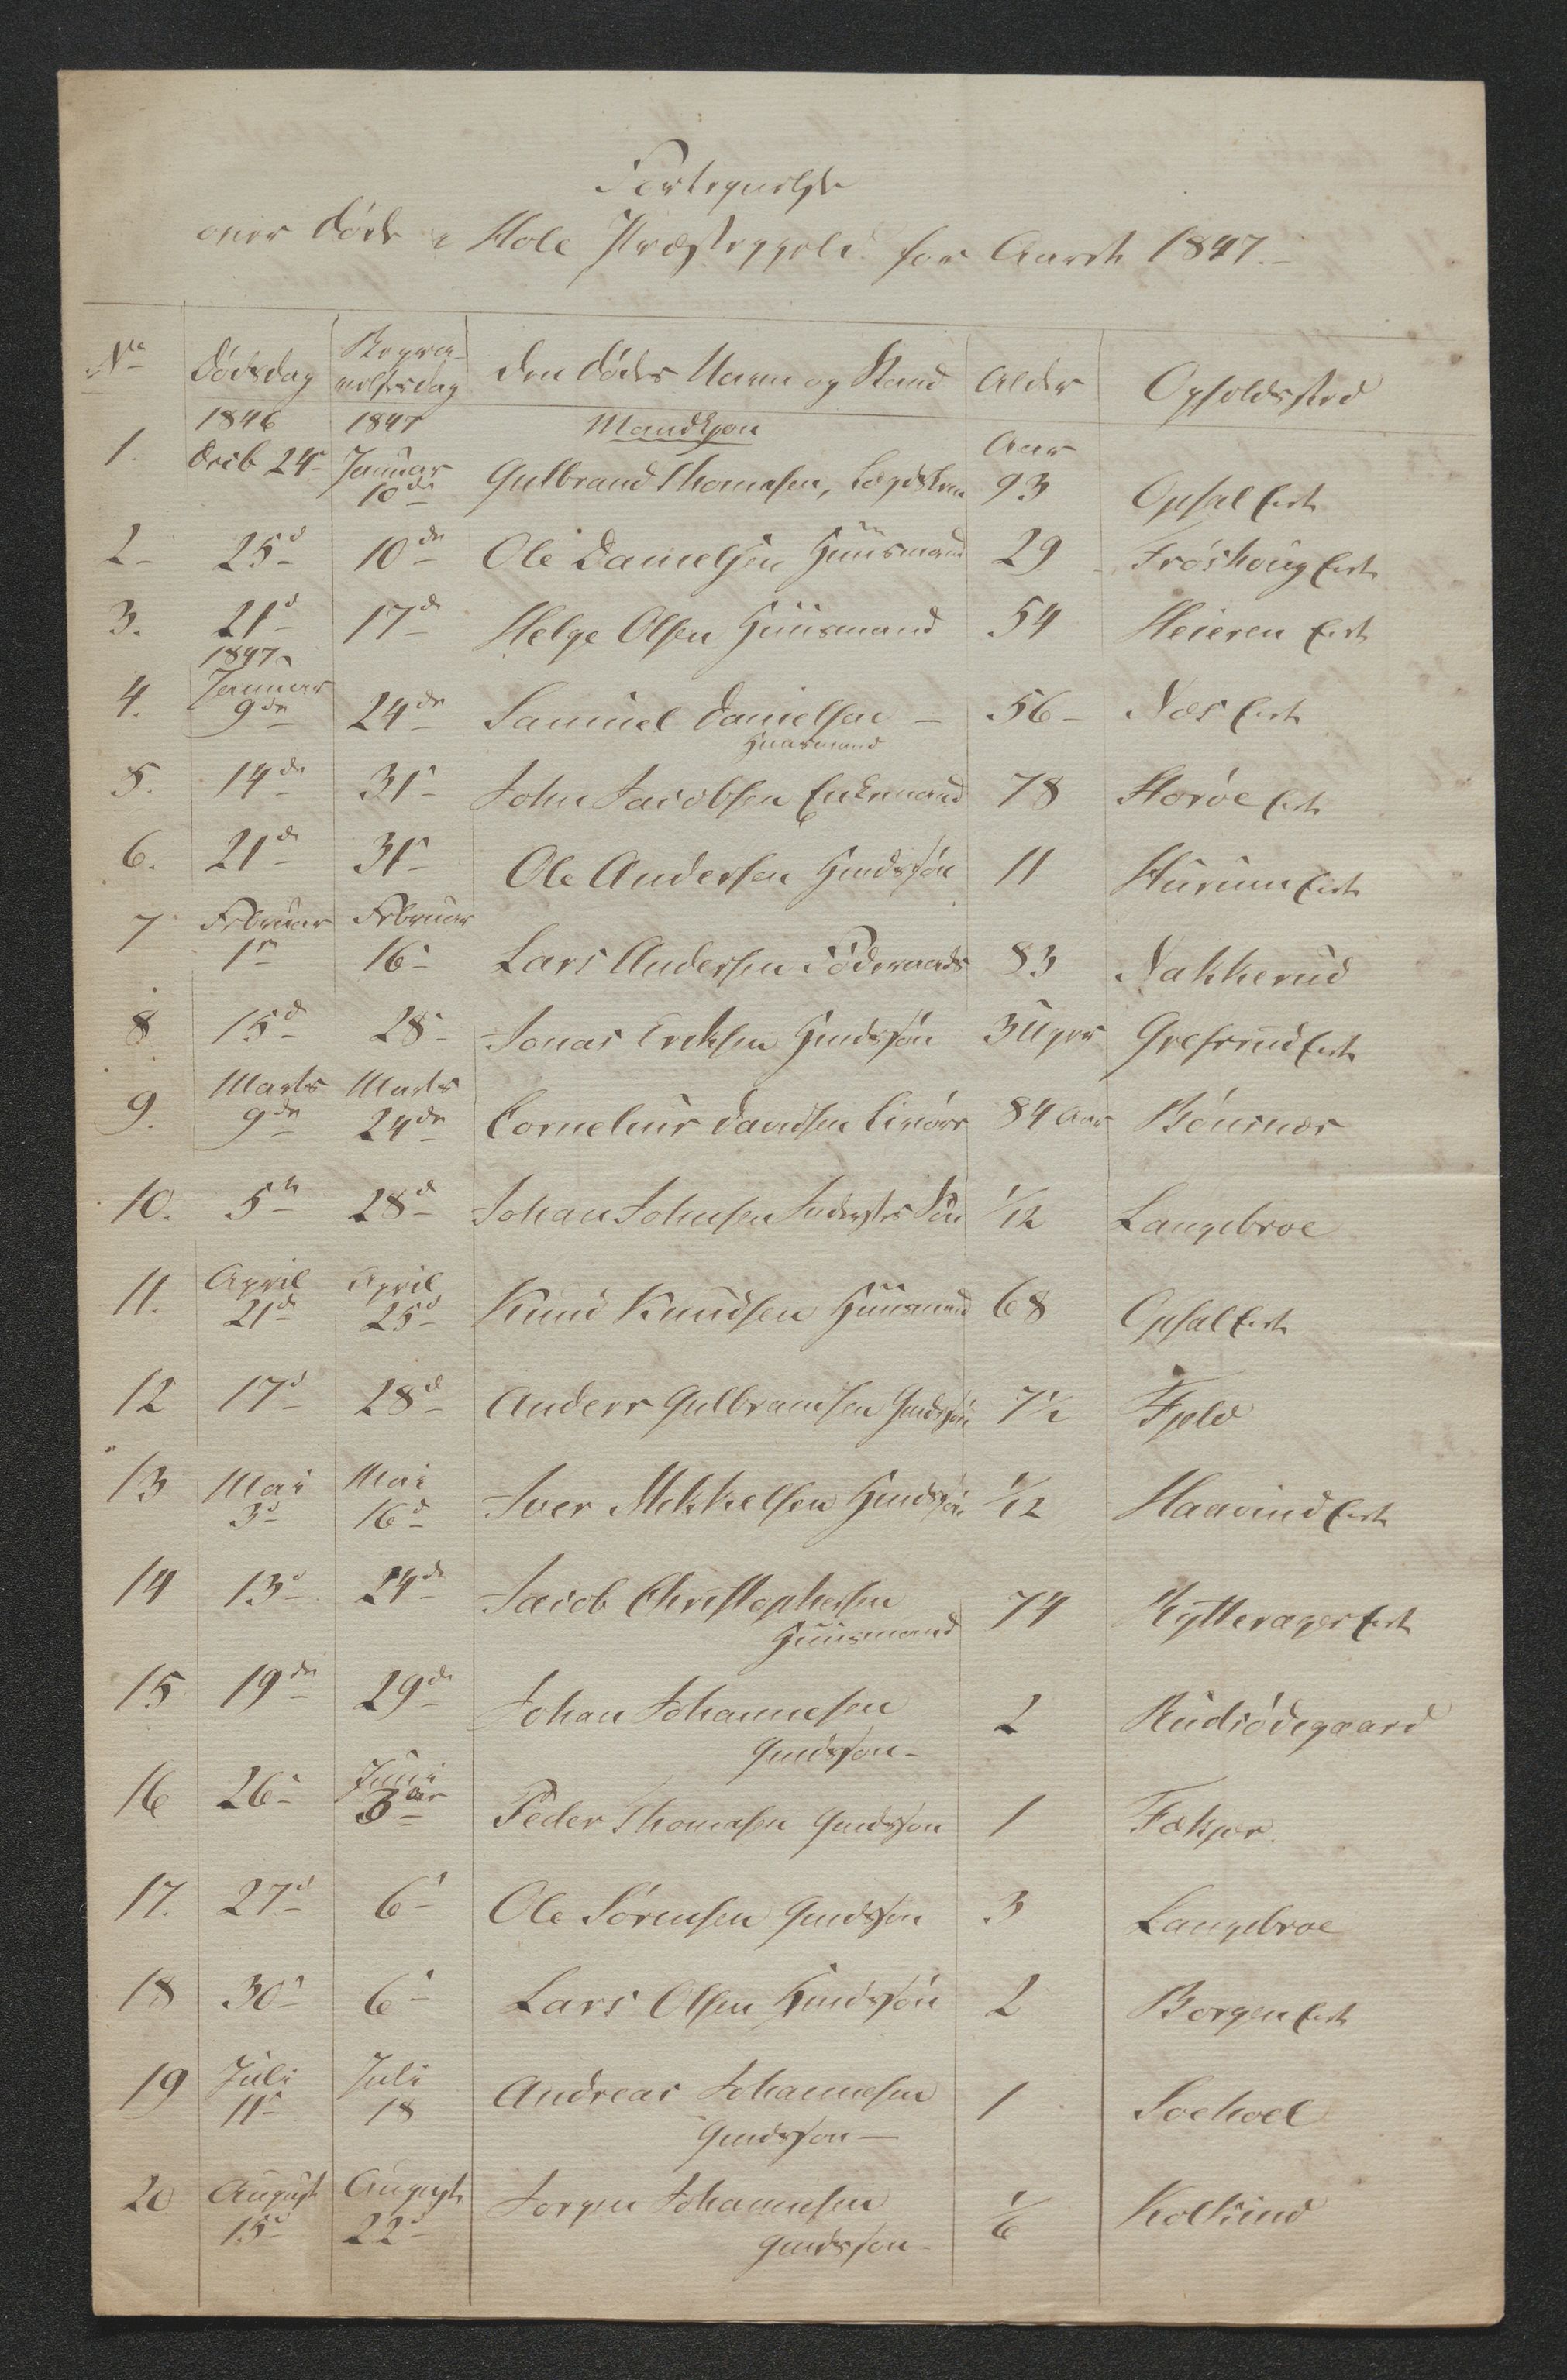 Fortegnelse
over døde i Hole Præstegjeld for Aaret 1847.-
No Dødsdag Begravelsesdag den dødes Navn og Stand Alder Opholdssted
1846 1847 Mandkjøn Aar
1. Decb 24 Januar 10de Gulbrand Thomesen, Lægdslem 93 Opsal Eiet
2 25d 10de Ole Danielsen Huusmand 29 Frøshoug Eiet
3. 21d 17d Helge Olsen Huusmand 54 Heieren Eiet
1847
4. Januar 9de 24de Samuel Danielsen - Huusmand 56 - Næs Eiet
5. 14de 31 John Jacobsen Enkemand 78 Storøe Eiet
6. 21de 31 Ole Andersen Hmdssøn 11 Hurum Eiet
7 Februar 1 Februar 16 Lars Andersen Føderaads 83 Nakkerud
8 15d 28 Jonas Eriksen Hmdssøn 3 Uger Grefsrud Eiet
9. Marts 9de Marts 24de Cornelius Davidsen 84 Aar Bønsnæs
10. 5te 28d Johan Johnsen Inderstes Søn 1/12 Langebroe
11. April 21d April 25d Knud Knudsen Huusmand 68 Opsal Eiet
12 17d 28d Anders Gulbrandsen Gmdssøn 7½ Fjeld
13 Mai 3d Mai 16d Iver Mikkelsen Hmdssøn 1/12 Haavind Eiet
14 13d 24de Jacob Christophersen Huusmand 74 Rytterager Eiet
15 19de 29de Johan Johannesen Gmdssøn 2 Rudsødegaard
16 26 Juni 3 Peder Thomesen Gmdssøn 1 Fækjær
17. 27d 6 Ole Sørensen Gmdssøn 3 Langebroe
18 30 6 Lars Olsen Hmdssøn 2 Borgen Eiet
19 Juli 11 Juli 18 Andreas Johannesen Gmdssøn - 1 Soehoel
20 August 15d August 22d Jørgen Johannesen Gmdssøn - 1/6